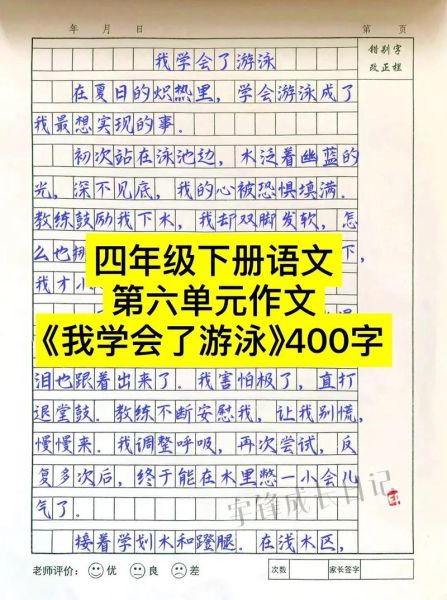 年 月 日 第 页
错别字
改正栏
我学会了游泳
在夏日的炽热里，学会游泳成了
我最想实现的事．
初次站在泳池边，水泛着幽蓝的
光，深不见底，我的心被恐惧填满．
教练鼓励我下水，我却双脚发软，怎
么也
下，
我才小
四年级下册语文
第六单元作文
《我学会了游泳》400字
泪也跟着出来了．我害怕极了，直打
退堂鼓．教练不断安慰我，让我别慌，
慢慢来．我调整呼吸，再次尝试，反
复多次后，终于能在水里憋一小会儿
气了．
宇锋成长日记
接着学划水和蹬腿．在浅水区，
老师评价： 优 良 差
次数 家长签字